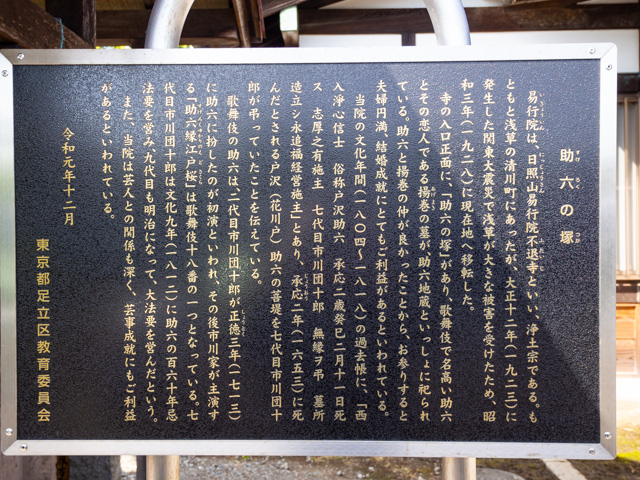 助六の塚
すけろく つか
易行院は、日照山易行院不退寺といい、浄土宗である。も
ともと浅草の清川町にあったが、大正十二年（一九二三）に
発生した関東大震災で浅草が大きな被害を受けたため、昭
和三年（一九二八）に現在地へ移転した。
寺の入口正面に、「助六の塚」があり、歌舞伎で名高い助六
とその恋人である揚巻の墓が助六地蔵といっしょに祀られ
ている。助六と揚巻の仲が良かったことから、お参りすると
夫婦円満、結婚成就にとてもご利益があるといわれている。
当院の文化年間（一八〇四～一八一八）の過去帳に、「西
入浄心信士 俗称戸沢助六 承応二歳癸巳二月十一日死
ス 志厚之有施主 七代目市川団十郎 無縁ヲ弔、墓所
造立シ永追福経営施主」とあり、承応二年（一六五三）に死
んだとされる戸沢（花川戸）助六の菩提を七代目市川団十
郎が弔っていたことを伝えている。
歌舞伎の助六は、二代目市川団十郎が正徳三年（一七一三）
に助六に扮したのが初演といわれ、その後市川家が主演す
る「助六縁江戸桜」は歌舞伎十八番の一つとなっている。七
代目市川団十郎は文化九年（一八一二）に助六の百六十年忌
法要を営み、九代目も明治になって、大法要を営んだという。
また、当院は芸人との関係も深く、芸事成就にもご利益
があるといわれている。
令和元年十二月
東京都足立区教育委員会